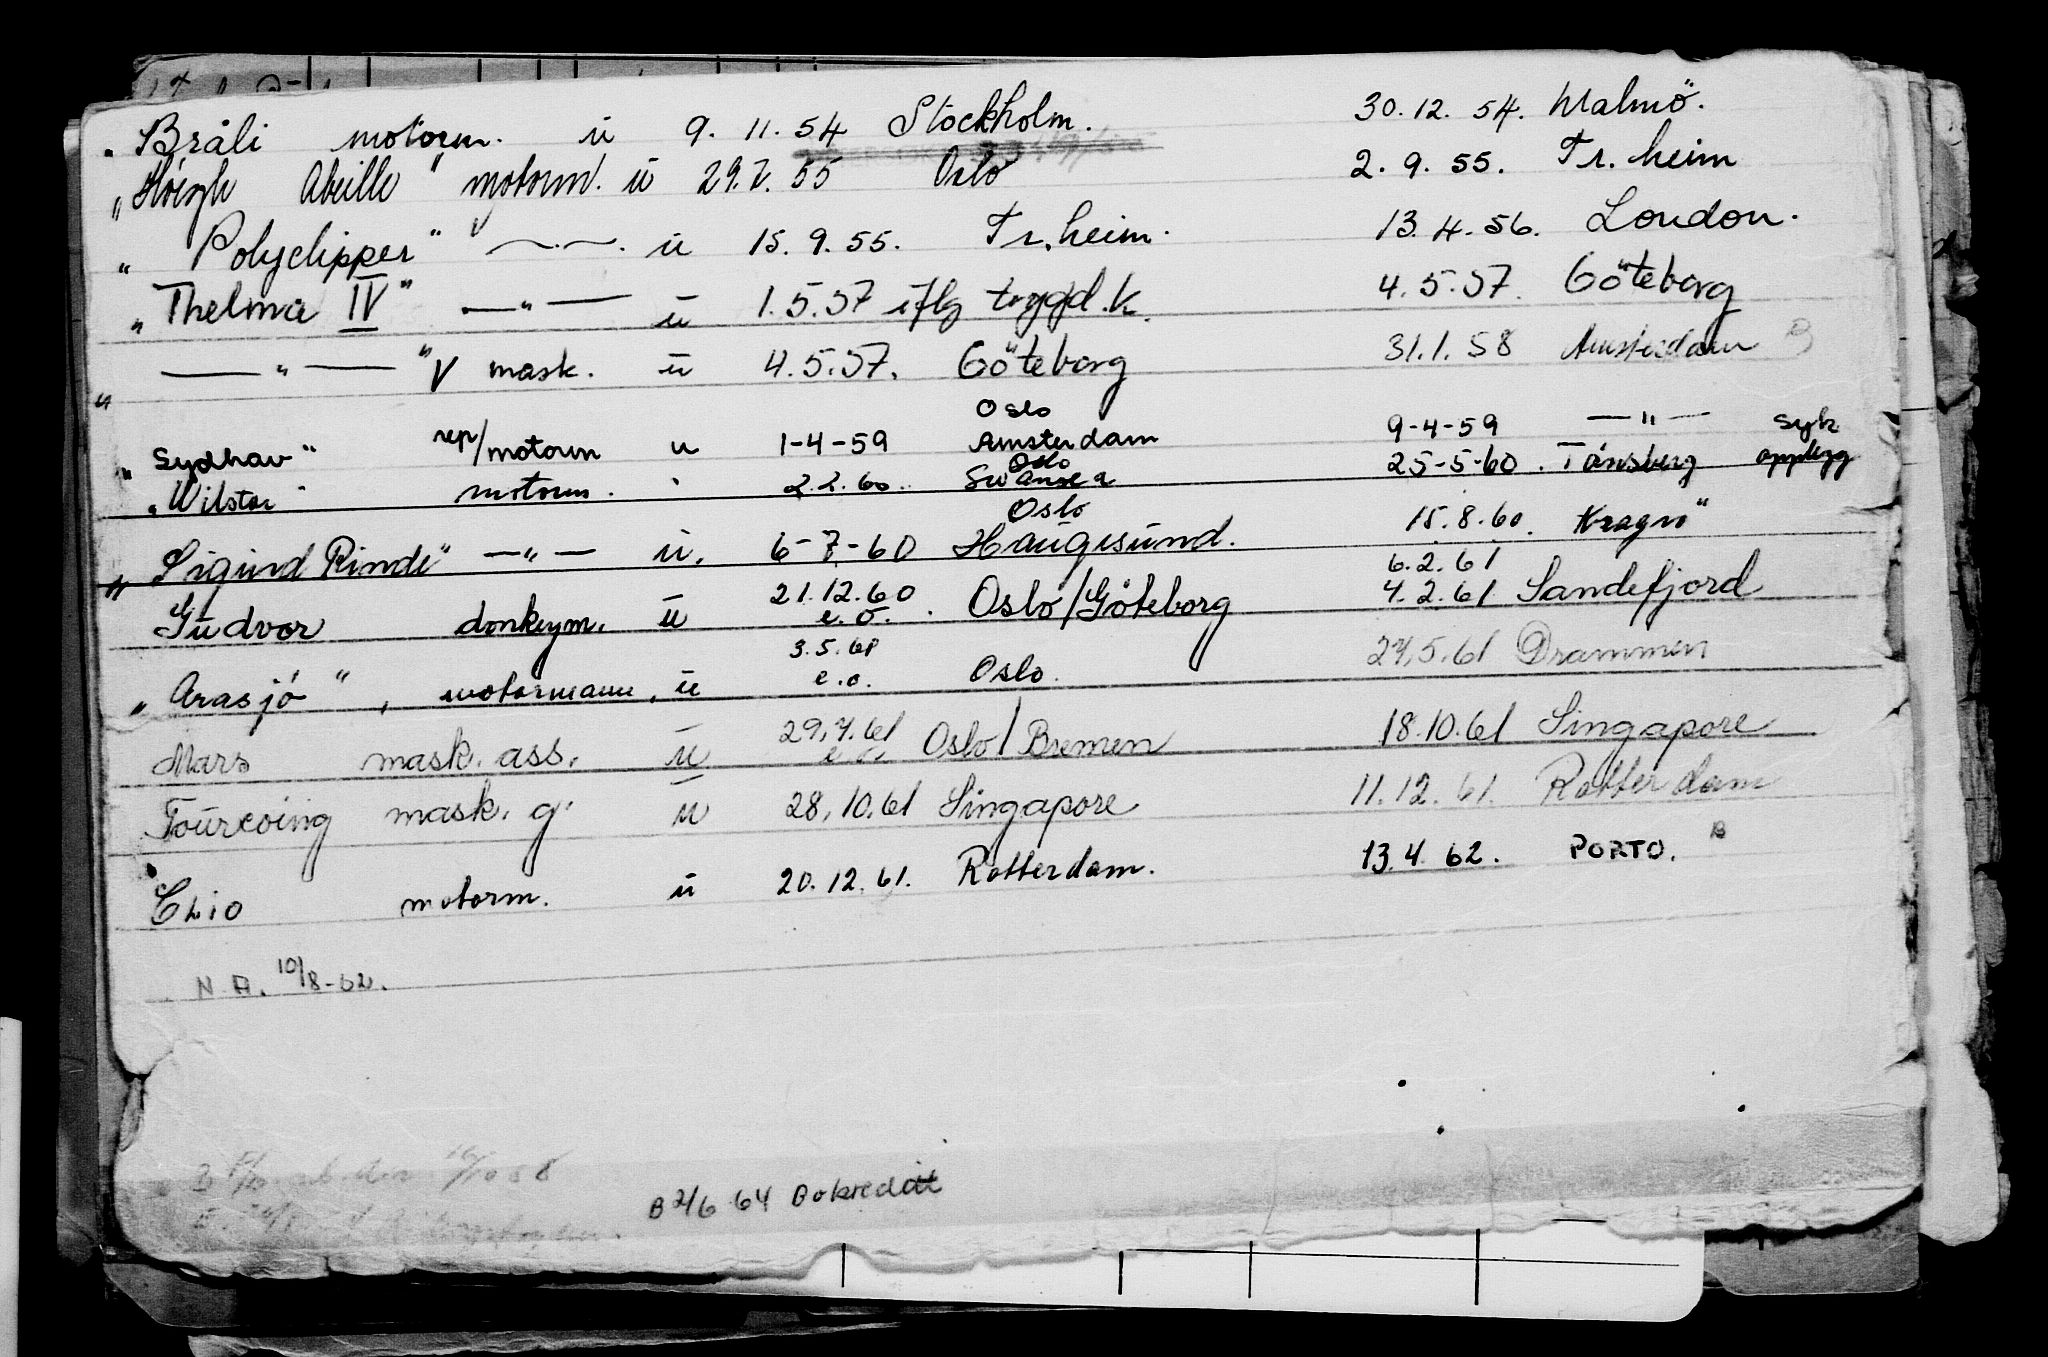 „Bråli motorm. u 9. 11. 54 Stockholm. 30. 12. 54. Malmö.
„Höegh Abeille" motorm. u 29.7. 55 Oslo 2. 9. 55. Tr. heim
„Polyclipper" —.—. u 15. 9. 55. Tr. heim. 13. 4. 56. London.
„Thelma IV" —„— u 1.5.57 iflg trygd.k. 4.5.57. Göteborg
„—„— "V mask. u 4.5.57. Göteborg 31.1.58 Amsterdam B
Oslo
„Sydhav" rep/motorm u 1-4-59 Amsterdam 9-4-59 —„— syk
Oslo
„Wilstar motorm. " 2.2.60. Swansea 25-5-60. Tönsberg opplegg
Oslo
„Sigurd Rinde" —„— u. 6-7-60 Haugesund. 15.8.60. Kragrö"
21.12.60 6.2.61
Gudvor donkeym. u e.o. Oslo/Göteborg 4.2.61 Sandefjord
3.5.61
„Arasjö", motormann, u e.o. Oslo. 27.5.61 Drammen
Mars mask. ass. u 29.7.61 e.o. Oslo/Bremen 18.10.61 Singapore
Tourcoing mask. g. u 28.10.61 Singapore 11.12.61. Rotterdam
Chio motorm. u 20.12.61. Rotterdam. 13.4 62. PORTO. B
N.A. 10/8-62.
B 2/6 64 Dokreditt